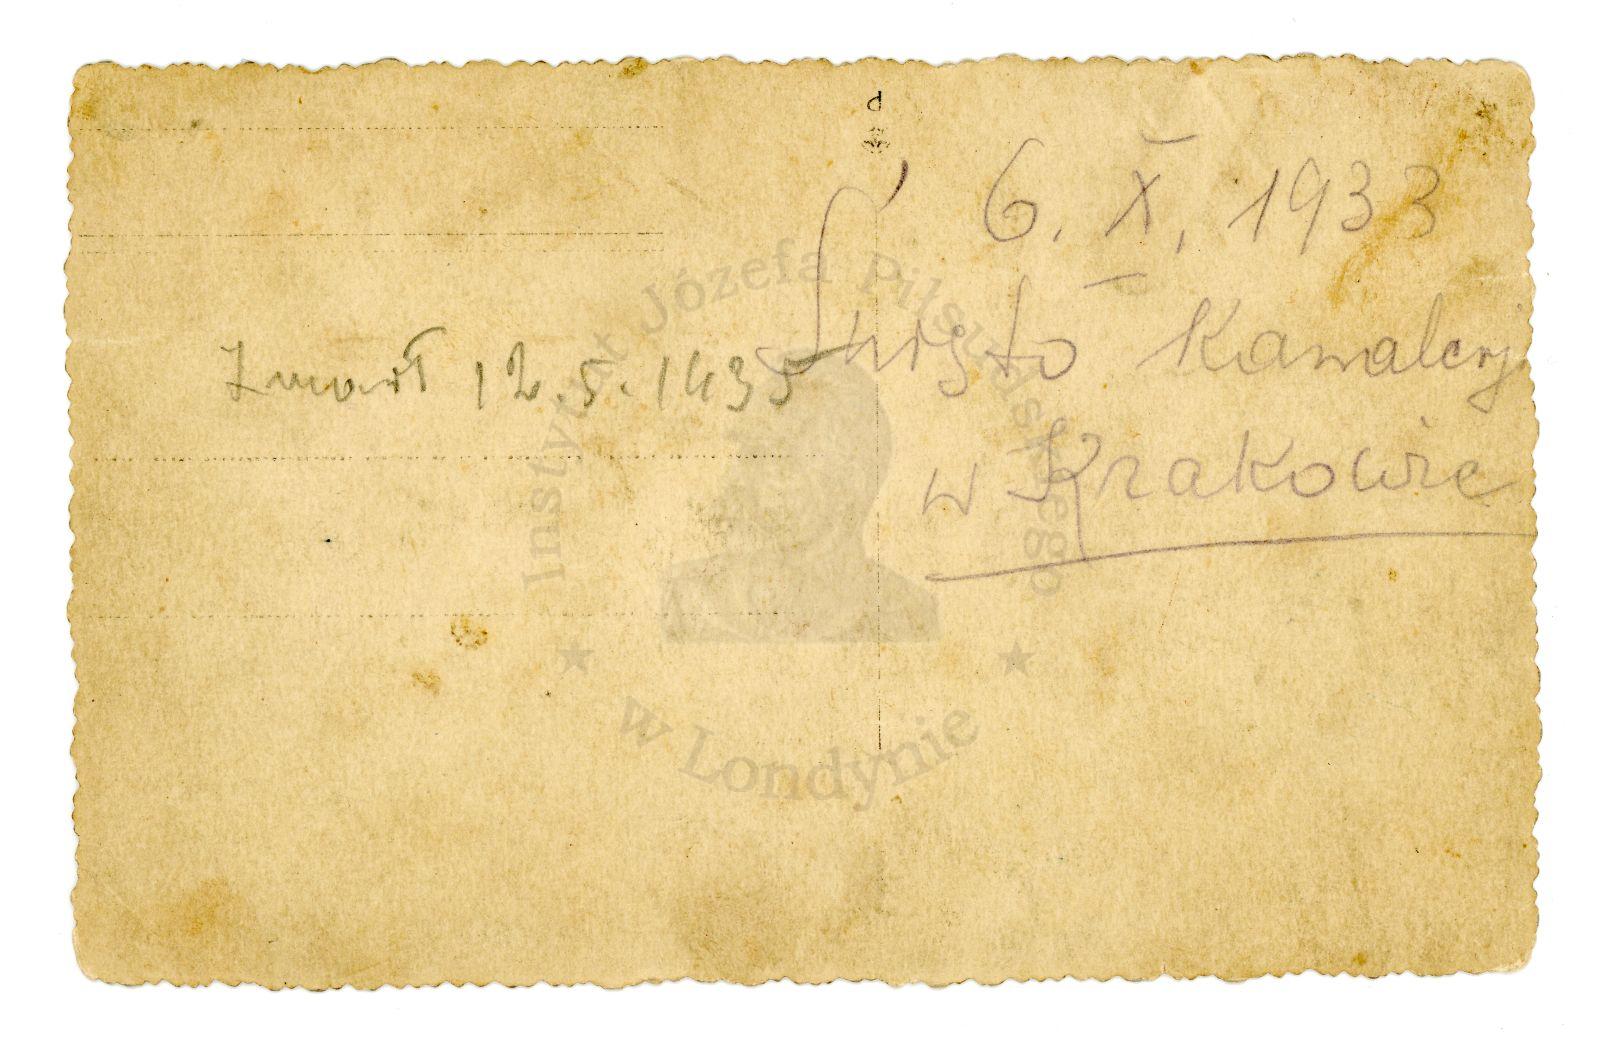 6. X. 1933
Święto Kawalerji
w Krakowie
Zmarł 12.5.1935
Instytut Józefa Piłsudskiego
w Londynie